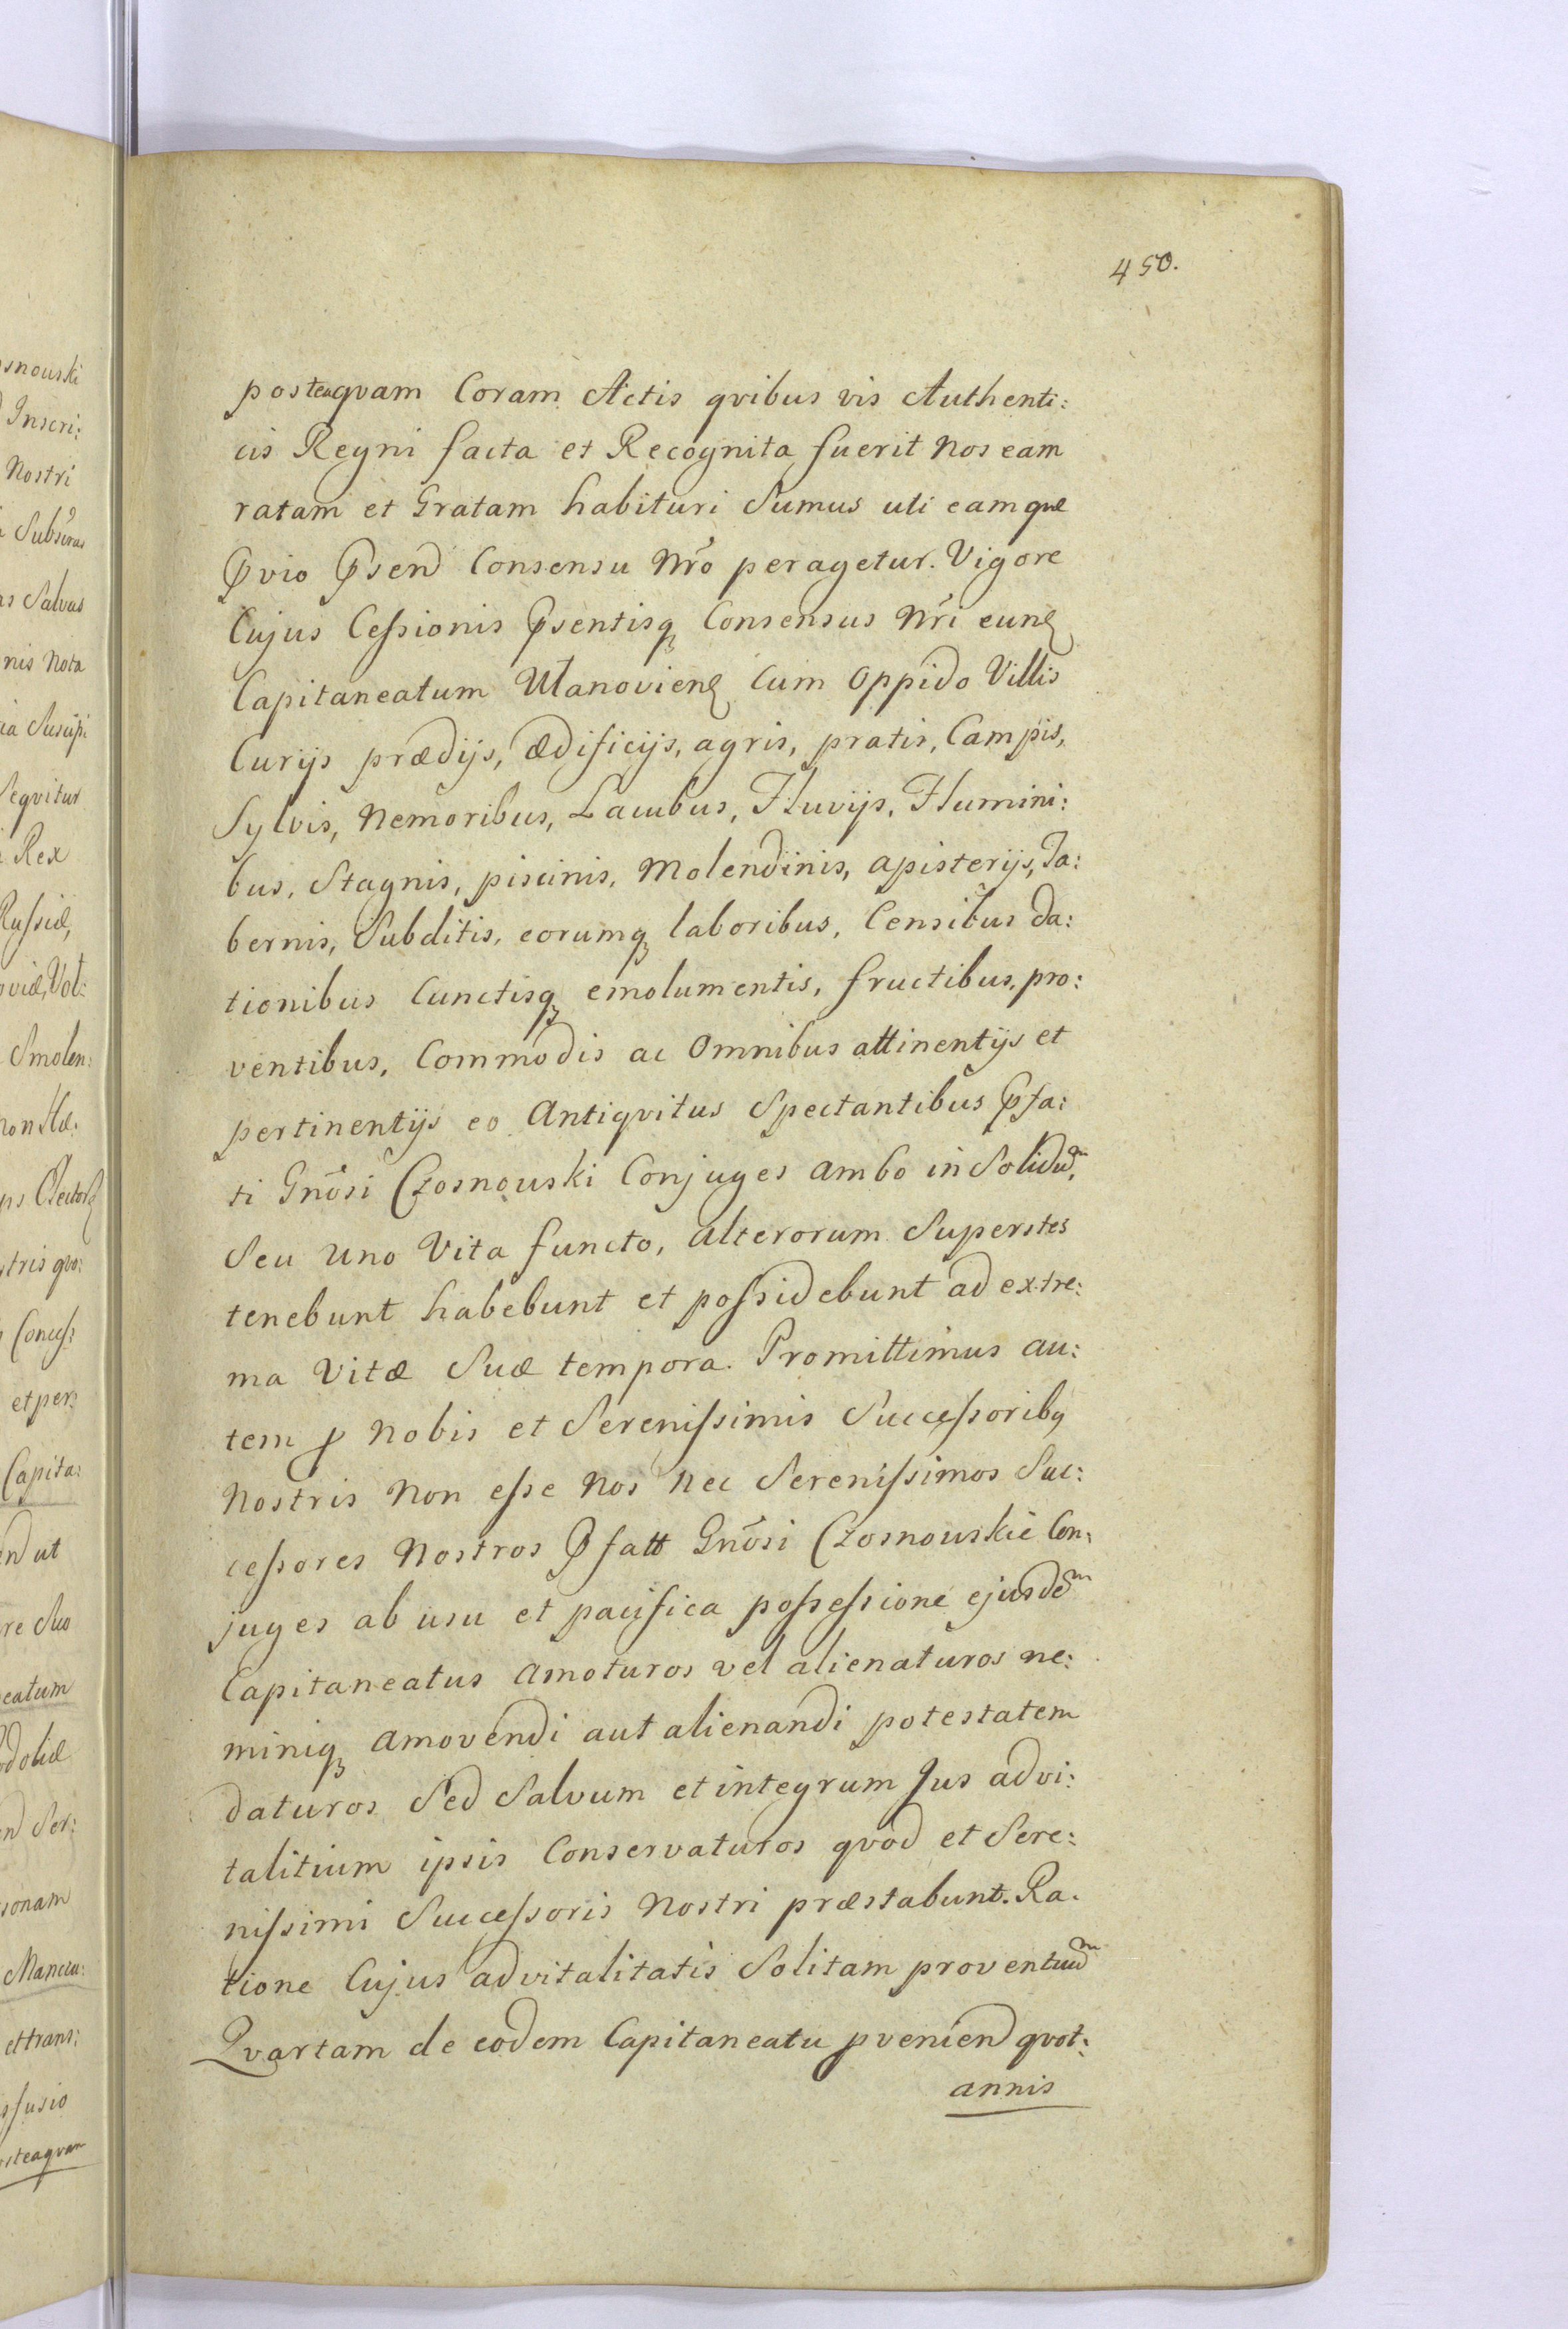 450.
posteaqvam Coram Actis qvibus vis Authenti:
cis Regni facta et Recognita fuerit nos eam
ratam et Gratam habituri Sumus uti eamque
Pvio Psend Consensu Nrō peragetur. Vigore
Cujus Cessionis Psentisq Consensus Nrī eund
Capitaneatum Ułanovien Cum Oppido Villis
Curijs prædijs, ædificijs, agris, pratis, Campis,
Sylvis, Nemoribus, Lacubus, Fluvijs, Flumini:
bus, Stagnis, piscinis, Molendinis, apisterijs, Ta:
bernis, Subditis, eorumq laboribus, Censibus da:
tionibus Cunctisq emolumentis, fructibus, pro:
ventibus, Commodis ac Omnibus attinentijs et
pertinentijs eo Antiqvitus Spectantibus Pfa:
ti Gnōsi Czosnouski Conjuges ambo in Solidum,
Seu Uno Vita functo, alterorum Superstes
tenebunt habebunt et possidebunt ad extre:
ma Vitæ Suæ tempora. Promittimus au:
tem p Nobis et Serenissimis Successoribq
Nostris Non esse Nos Nec Serenissimos Suc:
cessores Nostros Pfatt Gnōsi Czosnouskie Con:
juges ab usu et pacifica possessione ejusdem
Capitaneatus amoturos vel alienaturos ne:
miniq amovendi aut alienandi potestatem
daturos Sed Salvum et integrum Jus advi:
talitium ipsis Conservaturos qvod et Sere:
nissimi Successoris Nostri præstabunt. Ra.
tione Cujus advitalitatis Solitam proventuum
Qvartam de eodem Capitaneatu pveniend qvot:
annis
snouski
Inscri:
Nostri
Salvas
nis Nota
Seqvitur
Rex
Russiæ,
Smolen:
Concess:
et per:
Capita:
ut
re Suo
eatum
Ser:
sonam
et trans:
fusio
steaqvam